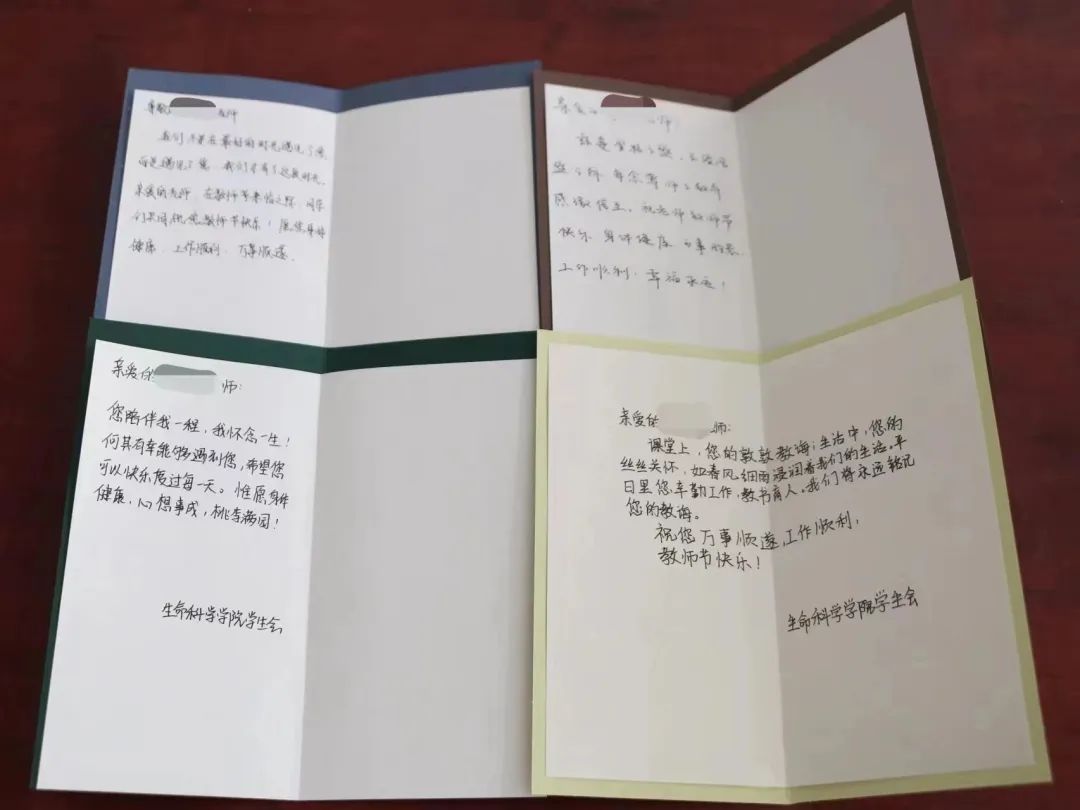 尊敬 老师
我们不是在最好的时光遇见了您
而是遇见了您,我们才有了这段时光。
亲爱的老师,在教师节来临之际,同学
们共同祝您教师节快乐!愿您身体
健康,工作顺利,万事顺遂。
亲爱 师:
感激
祝老师教师节
快乐 身体健康 万事如意
工作顺利,幸福永远!
亲爱的 师:
您陪伴我一程,我怀念一生!
何其有幸能够遇到您,希望您
可以快乐度过每一天。惟愿身体
健康,心想事成,桃李满园!
生命科学学院学生会
亲爱的 师:
课堂上,您的敦敦教诲;生活中,您的
丝丝关怀,如春风细雨浸润着我们的生活。平
日里您辛勤工作,教书育人。我们将永远铭记
您的教诲。
祝您万事顺遂,工作顺利,
教师节快乐!
生命科学学院学生会